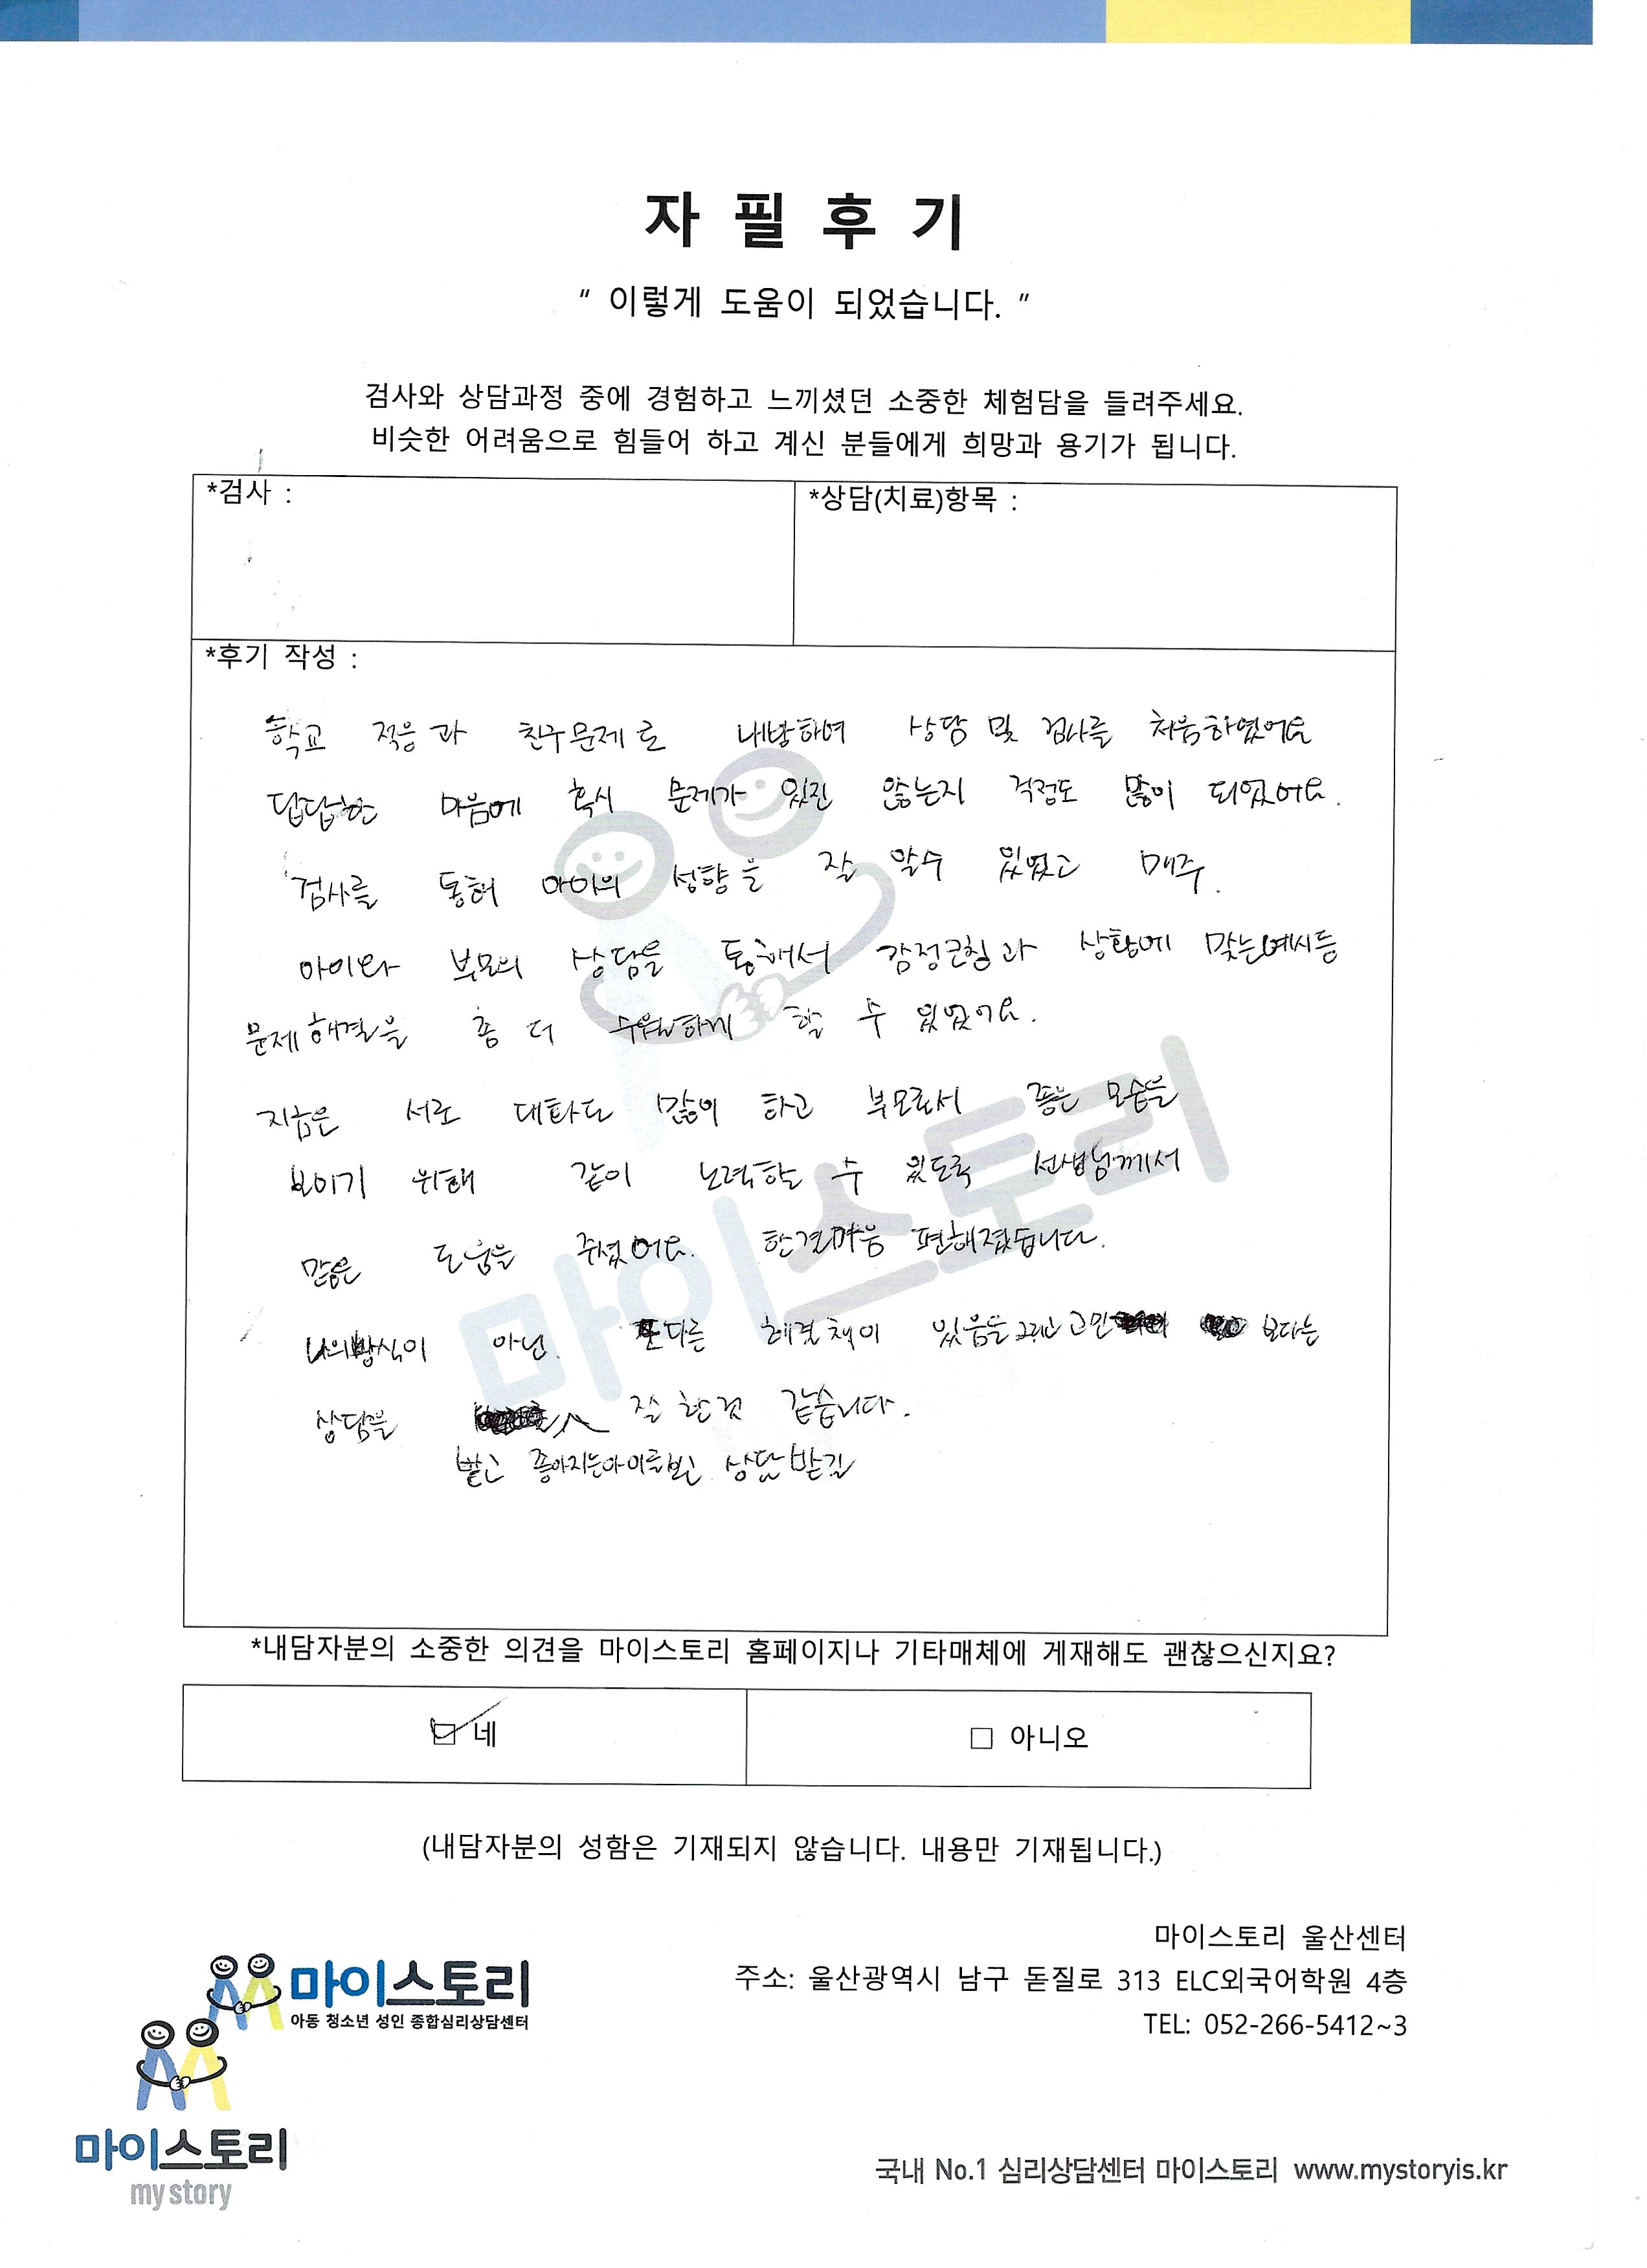 자 필 후 기
“ 이렇게 도움이 되었습니다. ”
검사와 상담과정 중에 경험하고 느끼셨던 소중한 체험담을 들려주세요.
비슷한 어려움으로 힘들어 하고 계신 분들에게 희망과 용기가 됩니다.
*검사 :
*상담(치료)항목 :
*후기 작성 :
학교 적응과 친구문제로 내방하여 상담 및 검사를 처음하였어요
답답한 마음에 혹시 문제가 있진 않는지 걱정도 많이 되었어요.
검사를 통해 아이의 성향을 잘 알수 있었고 매주.
아이와 부모의 상담을 통해서 감정코칭과 상황에 맞는예시등
문제해결을 좀 더 수월하게 할 수 있었어요.
지금은 서로 대화도 많이 하고 부모로서 좋은 모습을
보이기 위해 같이 노력할 수 있도록 선생님께서
많은 도움을 주셨어요. 한결마음 편해졌습니다.
나의방식이 아닌. 또다른 해결책이 있음을 고민 보다는
상담을 잘 한것 같습니다.
받고 좋아지는아이를보니 상담받길
마이스토리
*내담자분의 소중한 의견을 마이스토리 홈페이지나 기타매체에 게재해도 괜찮으신지요?
네
아니오
(내담자분의 성함은 기재되지 않습니다. 내용만 기재됩니다.)
마이스토리 울산센터
주소: 울산광역시 남구 돋질로 313 ELC외국어학원 4층
TEL: 052-266-5412~3
마이스토리
아동 청소년 성인 종합심리상담센터
마이스토리
my story
국내 No.1 심리상담센터 마이스토리 www.mystoryis.kr